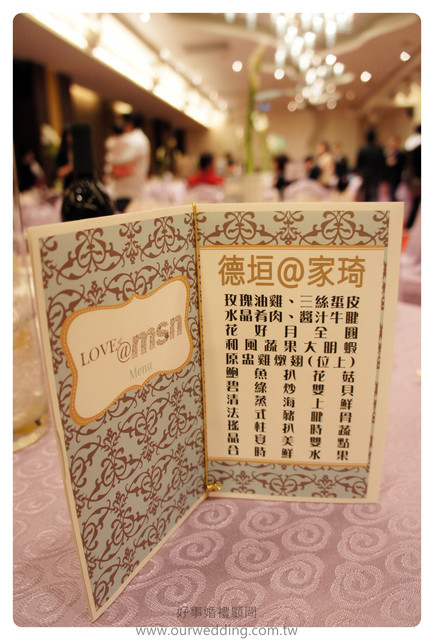 LOVE is
@msn
Menu
德垣@家琦
玫瑰油雞、三絲蜇皮
水晶肴肉、醬汁牛腱
花好月全圓
和風蔬果大明蝦
原盅雞燉翅(位上)
鮑魚扒花菇
碧綠炒雙貝
清蒸海上鮮
法式豬腱骨
瑤柱扒時蔬
品宴美雙點
合時鮮水果
好事婚禮顧問
www.ourwedding.com.tw